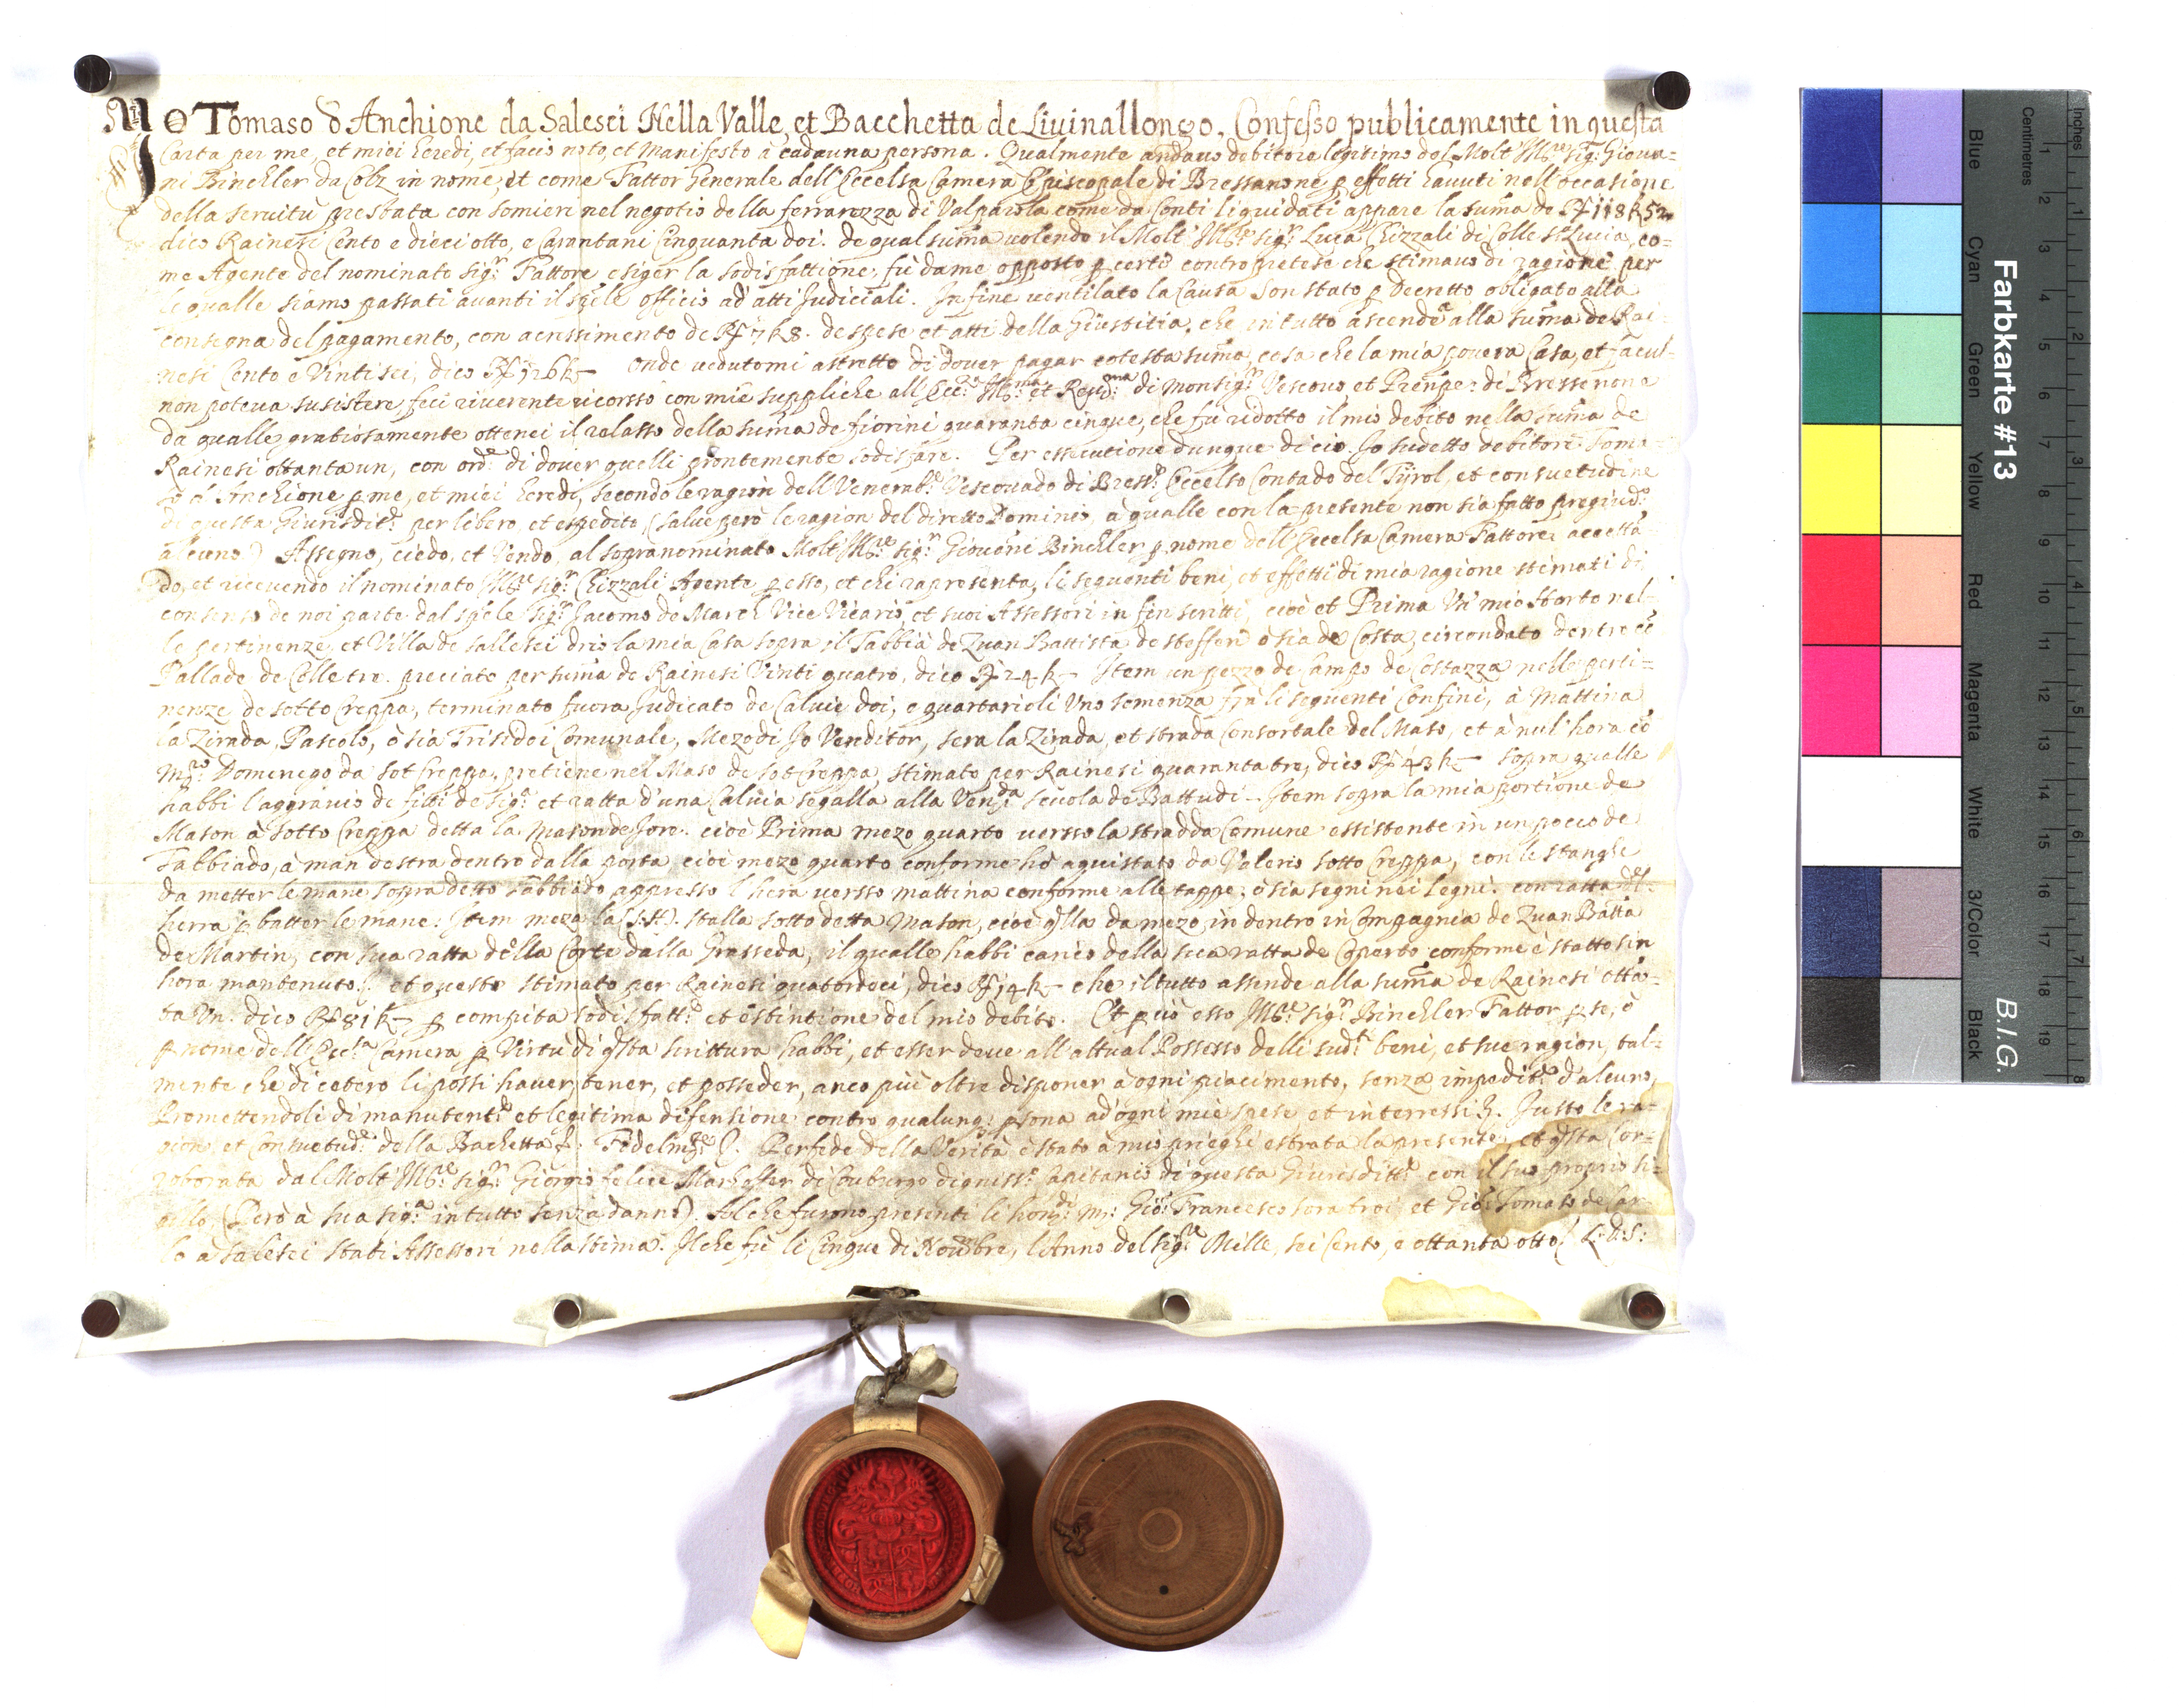 Io Tomaso d'Anchione da Salesei Nella Valle, et Bacchetta de Liuinallongo, Confesso publicamente in questa
Carta per me, et miei heredi, et facio noto, et Manifesto à cadauna persona. Qualmente andauo debitore legitimo del Molt' Ill:re Sig:r Gioua=
ni Binchler da Colz in nome, et come Fattor Generale dell'Eccelsa Camera Episcopale di Bressanone p effetti hauuti nell'occasione
della seruitù prestata con somieri nel negotio della ferrarezza di Valparola come da Conti liquidati appare la suma de Rf 118 k 52
dico Rainesi Cento e dieci otto, e Carantani Cinquanta doi. de qual suma uolendo il Molt' Ill:re Sig:r Luca Chizzali di Colle S:ta Lucia, co=
me Agente del nominato Sig:r Fattore esiger la sodisfattione, fù da me opposto p certo contropretese che stimauo di ragione per
le qualle siamo passati auanti il sple officio ad'atti Judiciali. In fine uentilato la Causa son stato p Decretto obligato alla
consegna del pagamento, con acressimento de Rf 7 k 8. de spese et atti della Giustitia, che in tutto ascende alla suma de Rai=
nesi Cento e Vinti sei, dico Rf 126 k – onde uedutomi astretto di douer pagar cotesta suma, cosa che la mia pouera Casa, et facul=
non poteua susistere, feci riuerente ricorsso con mie suppliche all'Ecc: Ill:ma et Reu:ma di Monsig:r Vescouo et Prenpe: di Bressenone
da qualle gratiosamente ottenei il relasso della suma de fiorini quaranta cinque, che fù ridotto il mio debito nella suma de
Rainesi ottanta un, con ord:e di douer quelli prontemente sodisfare. Per essecutione dunque di cio Io sudetto debitore Toma=
so d'Anchione p me, et miei heredi, secondo le ragion dell Venerab:e Vescouado di Bress:e Eccelso Contado del Tyrol, et consuetudine
di questa Giurisdit:e per libero, et espedito, (salue però le ragion del diretto Dominio, à qualle con la presente non sia fatto pregiud:o
alcuno) Assegno, ciedo, et Vendo, al sopranominato Molt' Ill:re Sig:r Giouani Binchler p nome dell'Eccelsa Camera Fattore, accetta
do, et riceuendo il nominato Ill:re Sig:r Chizzali Agente p esso, et chi rapresenta, li sequenti beni, et effetti di mia ragione stimati di
consenso de noi parte dal sple Sig:r Jacomo de March Vice Vicario, et suoi Assessori in fin scritti, cioè et Prima Vn mio Horto nel=
le pertinenze, et Villa de sallesei drio la mia Casa sopra il Tabbià de Zuan Battista de steffen ò sia de Costa, circondato dentro le
Pallade de Colle tre. preciato per suma de Rainesi Vinti quatro, dico Rf 24 k – Item un pezzo de Campo de Costazza nelle perti=
nenze de sotto Creppa, terminato fuora, Judicato de Caluie doi, e quartarioli Vno semenza frà li sequenti Confini, à Mattina
la Zirada, Pascolo, ò sia Trisidoi Comunale, Mezodì Io Venditor, sera la Zirada, et strada Consortale del Maso, et à nul'hora cò
m:ro Domenego da sot Creppa, pretiene nel Maso de sot Creppa, stimato per Rainesi quaranta tre, dico Rf 43 k – sopra qualle
habbi l'aggrauio de fitti de sig:r et ratta d'una Caluia segalla alla Ven:da scuola de Battudi. Item sopra la mia portione de
Mason à sotto Creppa detta la Mason de fore. cioè Prima mezo quarto uersso la stradda Comune essistente in un pocco de
Tabbiado, à man destra dentro dalla porta cioè mezo quarto conforme hò aquistato da Valerio sotto Creppa, con le stanghe
da metter le mane sopra detto Tabbiado appresso l'hera uersso mattina conforme alle tappe, ò sia segni nei legni. con ratta del
herra p batter le mane. Item meza la (S:H). stalla sotto detta Mason, cioè qlla da mezo in dentro in Compagnia de Zuan Batta
de Martin, con sua ratta della Corte dalla Grasseda, il qualle habbi carico della sua ratta de Coperto conforme è statto sin
hora mantenuto. et questo stimato per Rainesi quatordeci, dico Rf 14 k – che il tutto assende alla suma de Rainesi otta=
ta Vn. dico Rf 81 k – p compita sodisfatt:e et estintione del mio debito. Et p ciò esso Ill:re Sig:r Binchler Fattor p se, ò
p nome dell'Ecc:a Camera p Virtù di qsta scrittura habbi, et esser deue all'attual Possesso delli sud:ti beni, et sue ragion, tal=
mente che di cetero li possi hauer, tener, et posseder, anco più oltre disponer à ogni piacimento, senza impedit:o d'alcuno,
Promettendoli di manutent:e et legitima difensione contro qualunq: psona ad'ogni mie spese et interressi &. Justo le ra=
gion et Consuetud:e della Bachetta &. Fidelm:te &. Per fede della Verità è stato à mio prieghi estrata la presente, et qsta Cor=
roborata dal Molt' Ill:re Sig:r Giorgio felice Marhoffer di Couburgo digniss:o Capitanio di questa Giurisditt:e con il suo proprio si=
gillo (Però à sua sig:a in tutto senza danno). Al che furono presenti li hon:di m: Gio: Francesco soratroi et Gio: Tomaso de Car=
lo à salesei stati Assessori nella stima. Il che fù li Cinque di Nouembre, l'Anno del Sig:re Mille, sei Cento, e ottanta otto. L:S:
Farbkarte #13
B.I.G.
Blue Cyan Green Yellow Red Magenta White 3/Color Black
Centimetres 1 2 3 4 5 6 7 8 9 10 11 12 13 14 15 16 17 18 19
Inches 1 2 3 4 5 6 7 8